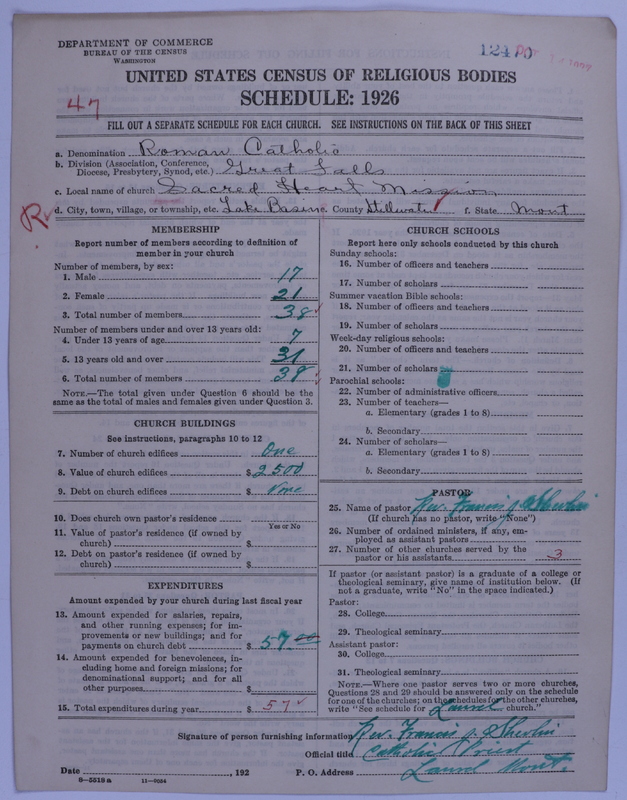 DEPARTMENT OF COMMERCE
BUREAU OF THE CENSUS
WASHINGTON
12470
UNITED STATES CENSUS OF RELIGIOUS BODIES
47
SCHEDULE: 1926
FILL OUT A SEPARATE SCHEDULE FOR EACH CHURCH. SEE INSTRUCTIONS ON THE BACK OF THIS SHEET
a. Denomination Roman Catholic
b. Division (Association, Conference, Diocese, Presbytery, Synod, etc.) Great Falls
c. Local name of church Sacred Heart Mission
R
d. City, town, village, or township, etc. Lake Basin County Stillwater f. State Mont
MEMBERSHIP
Report number of members according to definition of member in your church
Number of members, by sex:
1. Male 17
2. Female 21
3. Total number of members 38
Number of members under and over 13 years old:
4. Under 13 years of age 7
5. 13 years old and over 31
6. Total number of members 38
NOTE.—The total given under Question 6 should be the same as the total of males and females given under Question 3.
CHURCH BUILDINGS
See instructions, paragraphs 10 to 12
7. Number of church edifices One
8. Value of church edifices $ 2500
9. Debt on church edifices $ None
10. Does church own pastor's residence
Yes or No
11. Value of pastor's residence (if owned by church) $
12. Debt on pastor's residence (if owned by church) $
EXPENDITURES
Amount expended by your church during last fiscal year
13. Amount expended for salaries, repairs, and other running expenses; for improvements or new buildings; and for payments on church debt $ 57.00
14. Amount expended for benevolences, including home and foreign missions; for denominational support; and for all other purposes $
15. Total expenditures during year $ 57
CHURCH SCHOOLS
Report here only schools conducted by this church
Sunday schools:
16. Number of officers and teachers
17. Number of scholars
Summer vacation Bible schools:
18. Number of officers and teachers
19. Number of scholars
Week-day religious schools:
20. Number of officers and teachers
21. Number of scholars
Parochial schools:
22. Number of administrative officers
23. Number of teachers—
a. Elementary (grades 1 to 8)
b. Secondary
24. Number of scholars—
a. Elementary (grades 1 to 8)
b. Secondary
PASTOR
25. Name of pastor Rev. Francis J. Sherlin
(If church has no pastor, write "None")
26. Number of ordained ministers, if any, employed as assistant pastors
27. Number of other churches served by the pastor or his assistants 3
If pastor (or assistant pastor) is a graduate of a college or theological seminary, give name of institution below. (If not a graduate, write "No" in the space indicated.)
Pastor:
28. College
29. Theological seminary
Assistant pastor:
30. College
31. Theological seminary
NOTE.—Where one pastor serves two or more churches, Questions 28 and 29 should be answered only on the schedule for one of the churches; on the schedules for the other churches, write "See schedule for Laurel church."
Signature of person furnishing information Rev. Francis J. Sherlin
Official title Catholic Priest
Date , 192 P. O. Address Laurel Mont.
8—5518a 11—9034